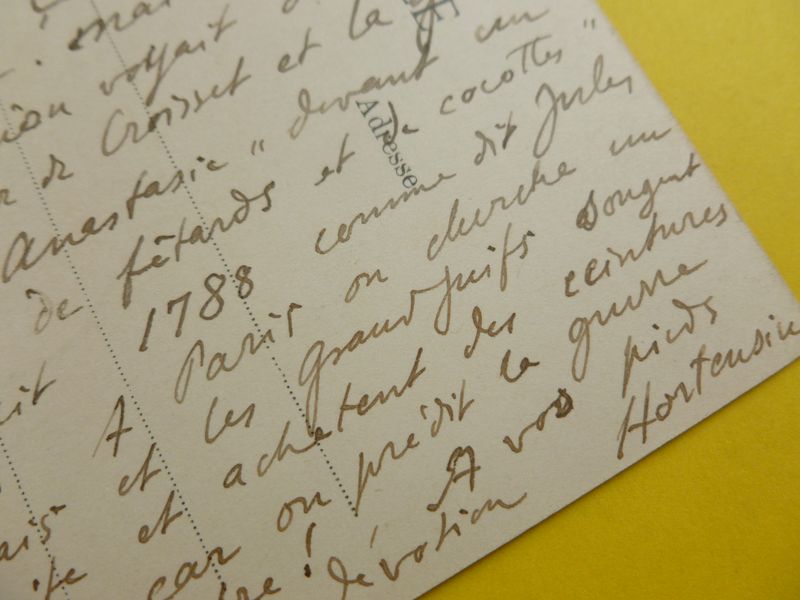 voyait
de Croisset et la
Anastasie" devant un
de fêtards et de cocottes"
1788 comme dit Jules
A Paris on cherche un
et les grands juifs songent
et achètent des ceintures
car on prédit la guerre
! A vos pieds
dévotion Hortensia
Adresse